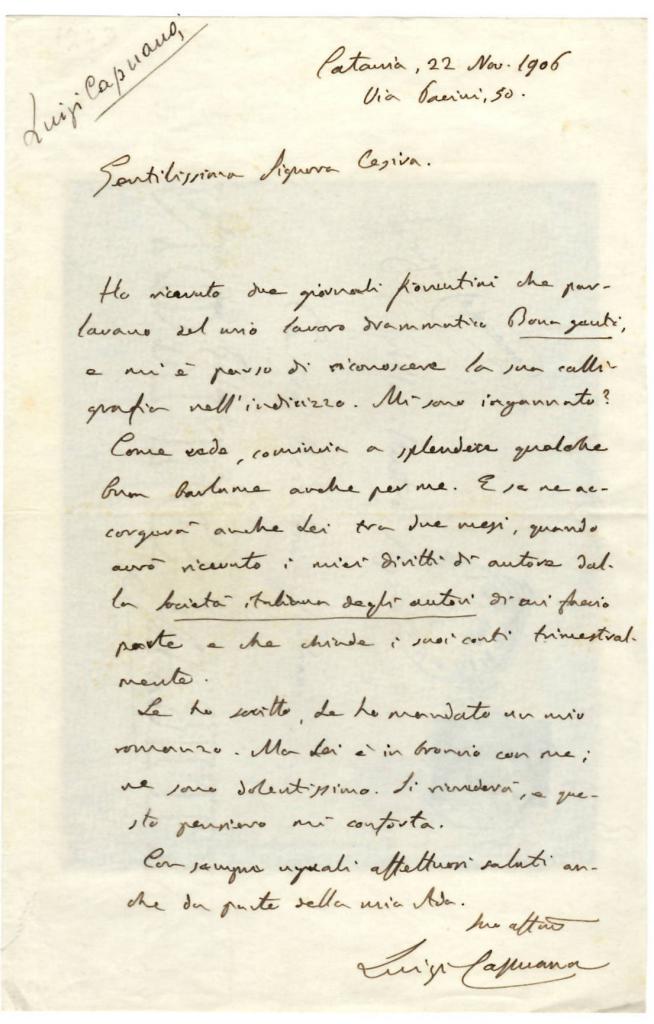 Luigi Capuana,
Catania, 22 Nov. 1906
Via Pacini, 50.
Gentilissima Signora Cesira.
Ho ricevuto due giornali fiorentini che par-
lavano del mio lavoro drammatico Bona genti,
e mi è parso di riconoscere la sua calli-
grafia nell'indirizzo. Mi sono ingannato?
Come vede, comincia a splendere qualche
buon barlume anche per me. E se ne ac-
corgerà anche Lei tra due mesi, quando
avrò ricevuto i miei diritti di autore dal-
la Società italiana degli autori di cui faccio
parte e che chiude i suoi conti trimestral-
mente.
Le ho scritto, Le ho mandato un mio
romanzo. Ma Lei è in broncio con me;
ne sono dolentissimo. Si ricrederà, e que-
sto pensiero mi conforta.
Con sempre uguali affettuosi saluti an-
che da parte della mia Ada.
Suo affmo
Luigi Capuana